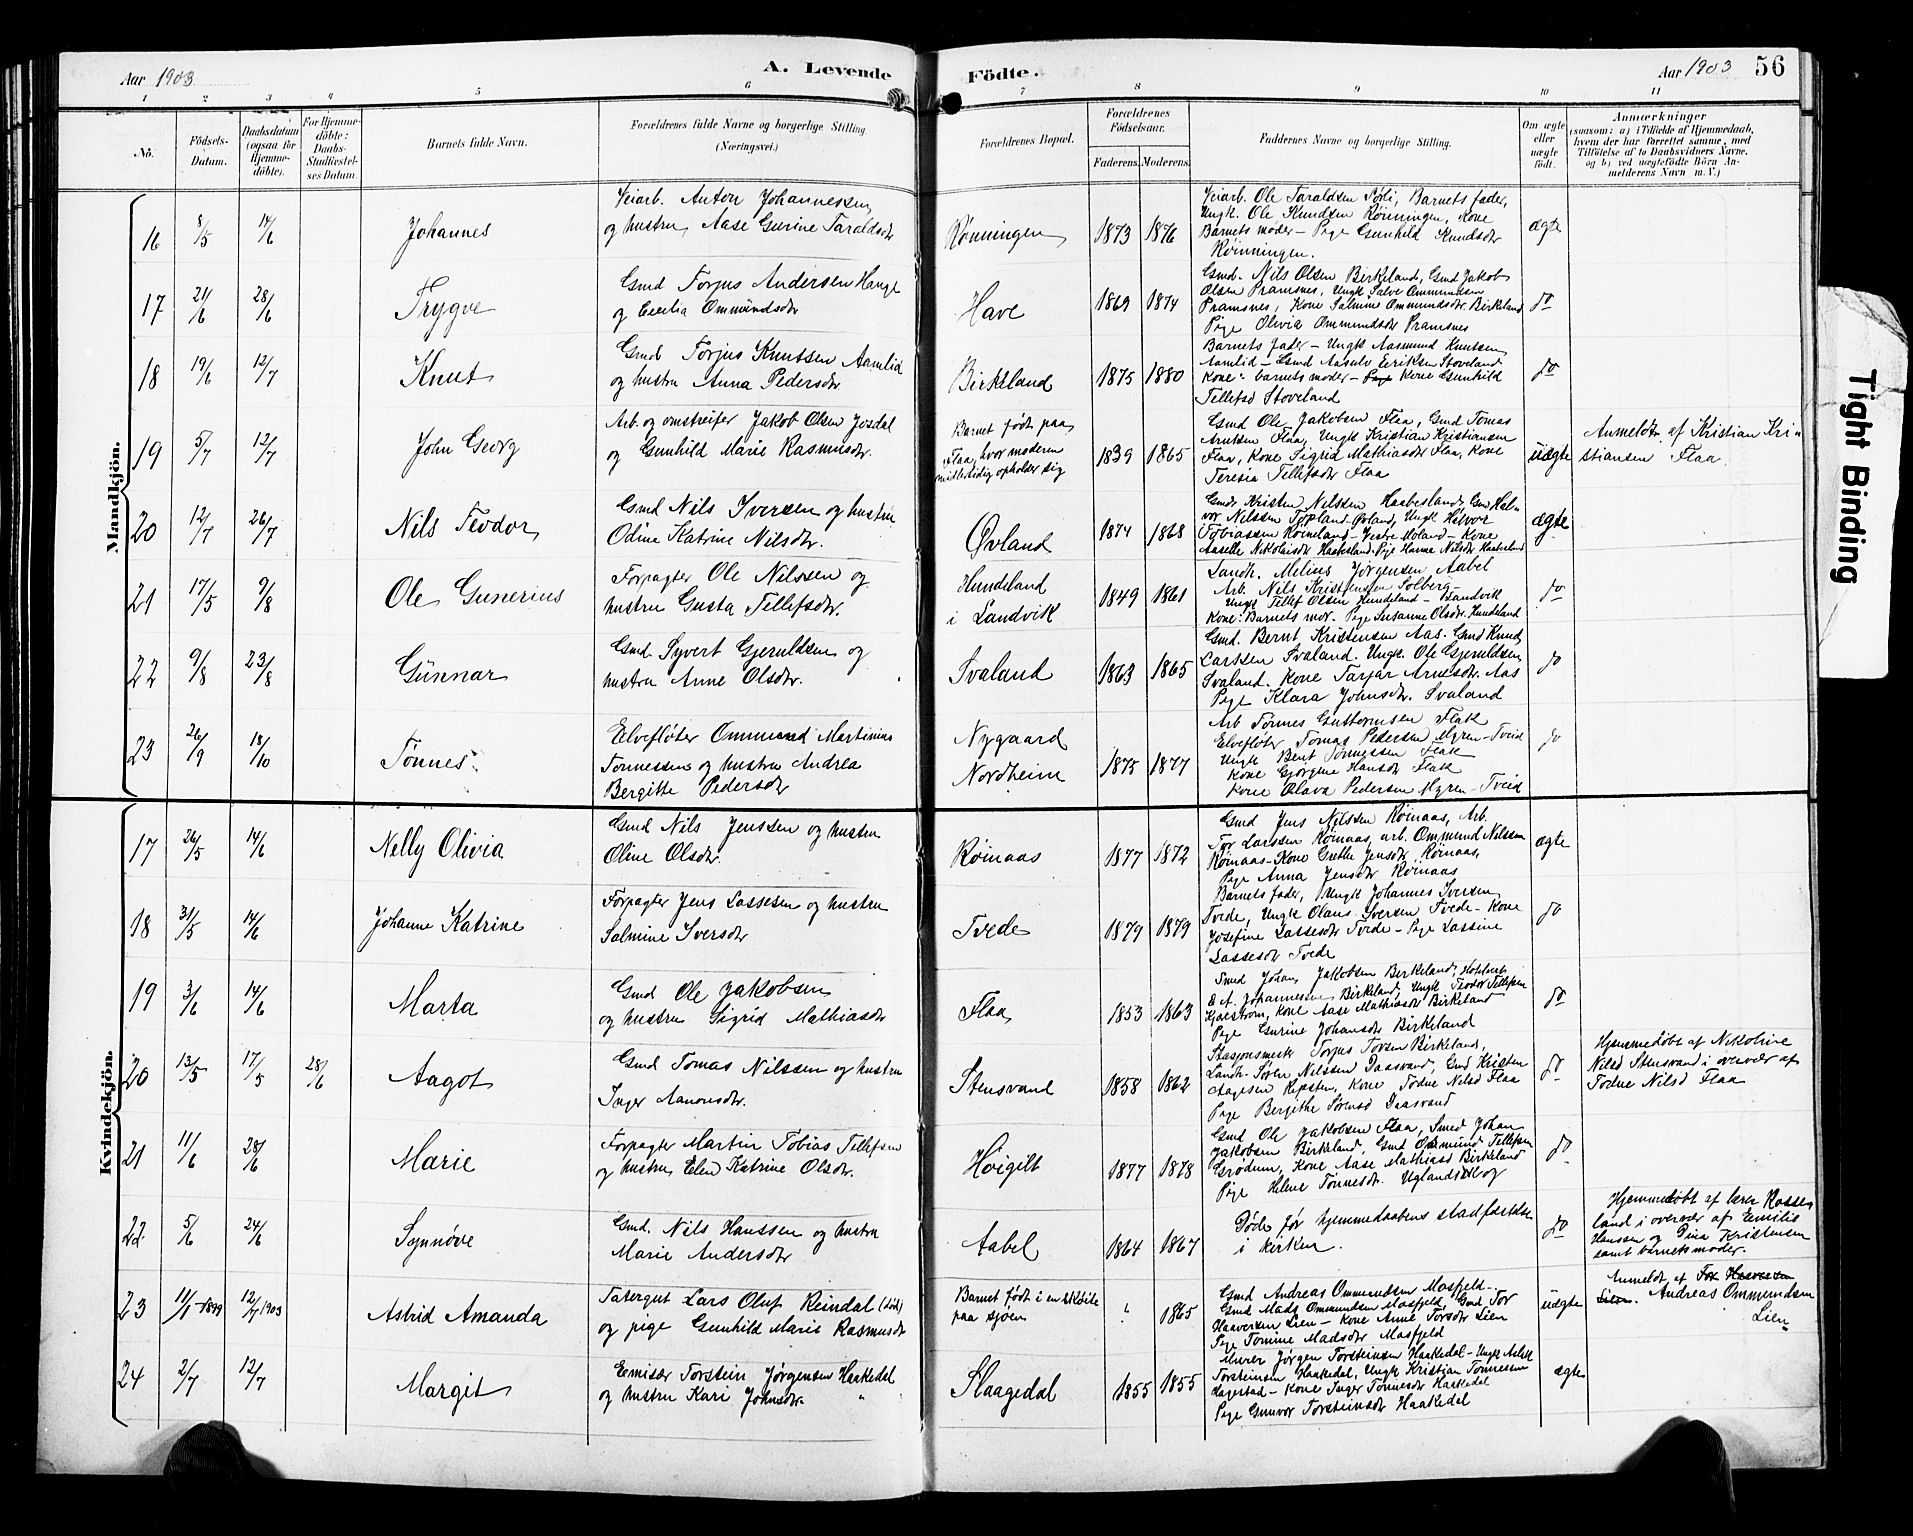 Aar 1903
A. Levende
Födte.
Aar 1903
56
1 2 3 4 5 6 7 8 9 10 11
No.
Födsels-
Datum.
Daabsdatum
(ogsaa for
Hjemme-
döbte).
For Hjemme-
döbte:
Daabs-
Stadfæstel-
ses Datum.
Barnets fulde Navn.
Forældrenes fulde Navne og borgerlige Stilling.
(Næringsvei.)
Forældrenes Bopæl.
Forældrenes
Födselsaar.
Faderens. Moderens.
Faddernes Navne og borgerlige Stilling.
Om ægte
eller
uægte
født.
Anmærkninger
(saasom: a) i Tilfælde af Hjemmedaab,
hvem der har forrettet samme, med
Tilföielse af to Daabsvidners Navne,
og b) ved uægtefödte Börn An-
melderens Navn m. V.)
Mandkjön.
16
8/5
14/6
Johannes
Veiarb. Anton Johannessen
og hustru Aase Gurine Taraldsdr
Rønningen
1873 1876
Veiarb. Ole Taraldsen Sørli, Barnets fader,
Ungk. Ole Knudsen Rønningen, Kone
Barnets moder – Pige Gunhild Knudsdr
Rønningen.
ægte
17
21/6
28/6
Trygve
Gmd Torjus Andersen Hauge
og Cecilia Ommundsdr
Have
1869 1874
Gmd. Nils Olsen Birkeland, Gmd Jakob
Olsen Pramsnes, Ungk Salve Ommundsen
Pramsnes, Kone Salmine Ommundsdr. Birkeland
Pige Olivia Ommundsdr Pramsnes
do
18
19/6
12/7
Knut
Gmd Torjus Knutsen Aamlid
og hustru Anna Pedersdr
Birkeland
1875 1880
Barnets fader – Ungk Aasmund Knutsen
Aamlid – Gmd Aasulv Eeriksen Stoveland
Kone: barnets moder – Pige Kone Gunhild
Tellefsd Stoveland
do
19
5/7
12/7
John Georg
Arb. og omstreifer Jakob Olsen Josdal
og Gunhild Marie Rasmusdr.
Barnet født paa
Flaa, hvor moderen
midlertidig opholder sig
1839 1865
Gmd Ole Jakobsen Flaa, Gmd Tomas
Arntsen Flaa, Ungk Kristian Kristiansen
Flaa, Kone Sigrid Mathiasdr Flaa, Kone
Teresia Tellefsdr Flaa
uægte
Anmeldt af Kristian Kri-
stiansen Flaa
20
12/7
26/7
Nils Teodor
Gmd Nils Iversen og hustru
Odine Katrine Nilsdr.
Øvland
1874 1868
Gmd Kristen Nilssen Haabesland, Gm Hal-
vor Nilssen Topland Øvland, Ungk Hilvor
Tobiassen Røineland – Vestre Moland – Kone
Aaselle Nikolaisdr Haabesland – Pige Hanna Nilsdr Haabesland
ægte
21
17/5
9/8
Ole Gunerius
Forpagter Ole Nilssen og
hustru Gusta Tellefsdr.
Hundeland
i Landvik
1849 1861
Landh. Melius Jørgensen Aabel
Arb. Nils Kristensen Solberg –
Ungk Tellef Olsen Hundeland – Landvik
Kone: Barnets mor. Pige Susanne Olsdr. Hundeland
do
22
9/8
23/8
Gunnar
Gmd. Syvert Gjeruldsen og
hustru Anne Olsdr.
Svaland
1863 1865
Gmd. Bernt Kristensen Aas. Gmd Knud
Larssen Svaland. Ungk. Ole Gjeruldsen
Svaland. Kone Tarjar Arnesdr. Aas
Pige Klara Johnsdr. Svaland
do
23
26/9
18/10
Tønnes
Elvefløter Ommund Martinius
Tønnessen og hustru Andrea
Bergitte Pedersdr
Nygaard
Nordheim
1875 1877
Arb Tønnes Guttormsen Flak
Elvefløter Tomas Pedersen Myren – Tveid
Ungk Bent Tønnessen Flak
Kone Gjørgine Hansdr Flak
Kone Olava Pedersen Myren – Tveid
do
Kvindekjön.
17
26/5
14/6
Nelly Olivia
Gmd Nils Jenssen og hustru
Oline Olsdr.
Røinaas
1877 1872
Gmd Jens Nilssen Røinaas, Arb.
Tor Larssen Røinaas, arb. Ommund Nilssen
Røinaas – Kone Grethe Jensdr. Røinaas,
Pige Anna Jensdr Røinaas
ægte
18
31/5
14/6
Johanne Katrine
Forpagter Jens Lassesen og hustru
Salmine Iversdr
Tvede
1879 1879
Barnets fader, Ungk Johannes Iversen
Tvede, Ungk Olaus Iversen Tvede – Kone
Josefine Lassesdr Tvede – Pige Lassine
Lassesdr Tvede
do
19
3/6
14/6
Marta
Gmd Ole Jakobsen
og hustru Sigrid Mathiasdr
Flaa
1853 1863
Smed Johan Jakobsen Birkeland,
Johannessen Birkeland, Ungk Teodor Tellefsen
Kjærstrøm, Kone Aase Mathiasdr Birkeland
Pige Gurine Johansdr Birkeland
do
20
13/5
17/5
28/6
Aagot
Gmd Tomas Nilssen og hustru
Inger Aanonsdr.
Stensvand
1858 1862
Stasjonsmestr Torjus Torsen Birkeland,
Landh. Søren Nilssen Daasvand, Gmd Kristen
Aagesen Ripsten, Kone Todne Nilsd Flaa
Pige Bergithe Sørensd Daasvand
do
Hjemmedøbt af Nikoline
Nilsd Stensvand i overvær af
Todne Nilsd Flaa
21
11/6
28/6
Marie
Forpagter Martin Tobias Tellefsen
og hustru Elen Katrine Olsdr.
Høigilt
1877 1878
Gmd Ole Jakobsen Flaa, Smed Johan
Jakobsen Birkeland, Gmd Osmund Tellefsen
Grødum, Kone Aase Mathiasd Birkeland
Pige Helene Tønnesdr. Uglandsskog
do
22
5/6
24/6
Synnøve
Gmd. Nils Hanssen og hustru
Marie Andersdr
Aabel
1864 1867
Døde før hjemmedaabens stadfæstelse
i kirken.
do
Hjemmedøbt af lærer Rosse-
land i overvær af Emilie
Hanssen og Pina Kristensen
samt barnets moder.
23
11/1 – 1899
12/7 1903
Astrid Amanda
Tatergut Lars Oluf Reindal (død)
og pige Gunhild Marie Rasmusdr
Barnet født i en skøite
paa sjøen
" 1865
Gmd Andreas Ommundsen Mosfjeld –
Gmd Mads Ommundsen Mosfjeld, Gmd Tor
Haaversen Lien – Kone Anne Torsdr Lien
Pige Tomine Madsdr Mosfjeld
uægte
Anmeldt af Tor Haaversen
Lien. Andreas Ommundsen
Lien
24
2/7
12/7
Margit
Emisær Torstein Jørgensen Haakedal
og hustru Kari Johnsdr. "
Slaagedal
1855 1855
Murer Jørgen Torsteinsen Haakedal – Ungk Aslak
Torsteinsen Haakedal, Ungk Kristian Tønnessen
Lagestad – Kone Inger Tønnesdr Haakedal
Pige Gunvor Torsteinsdr Haakedal
ægte
Tight Binding